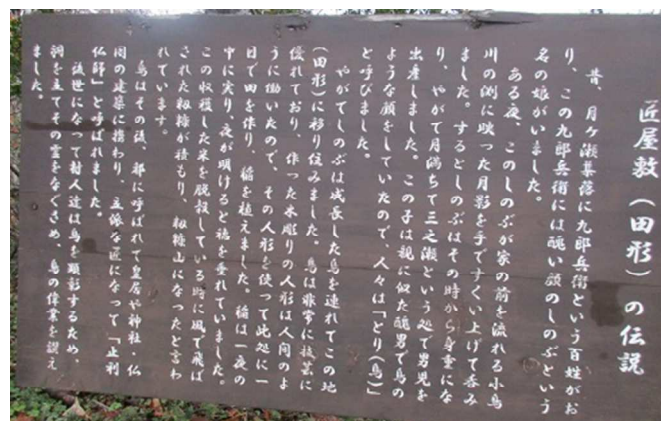 匠屋敷（田形）の伝説
昔、月ヶ瀬暮落に九郎兵衛という百姓がお
り、この九郎兵衛には醜い顔のしのぶという
名の娘がいました。
ある夜、このしのぶが家の前を流れる小鳥
川の渕に映った月影を手ですくい上げて呑み
ました。するとしのぶはその時から身重にな
り、やがて月満ちて三之瀬という処で男児を
出産しました。この子は親に似た醜男で鳥の
ような顔をしていたので、人々は「とり（鳥）」
と呼びました。
やがてしのぶは成長した鳥を連れてこの地
（田形）に移り住みました。鳥は非常に技芸に
優れており、作った木彫りの人形は人間のよ
うに働いたので、その人形を使って此処に一
日で田を作り、稲を植えました。稲は一夜の
中に実り、夜が明けると穂を垂れていました。
この収穫した米を脱穀している時に風で飛ば
された籾糠が積もり、籾糠山になったと言わ
れています。
鳥はその後、都に呼ばれて皇居や神社・仏
閣の建築に携わり、立派な匠になって「止利
仏師」と呼ばれました。
後世になって村人達は鳥を顕彰するため、
祠を立てその霊をなぐさめ、鳥の偉業を讃え
ました。